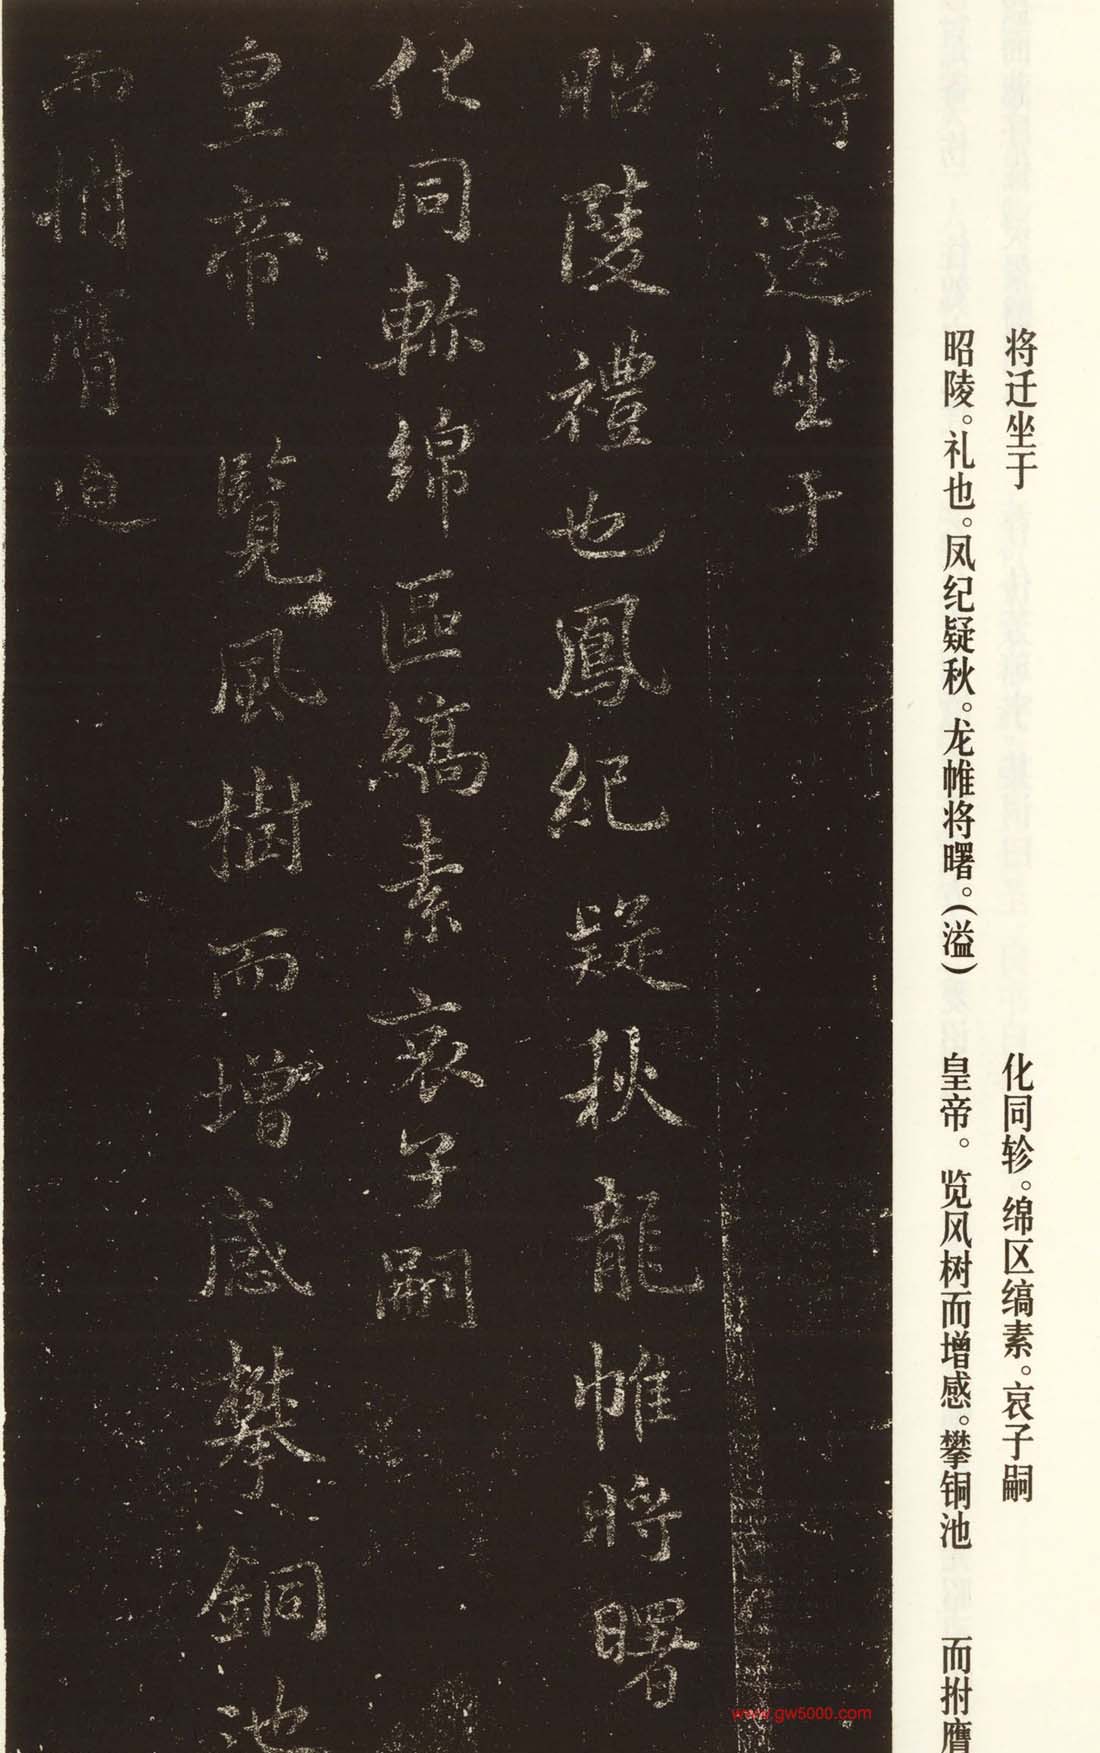 将遷坐于
昭陵禮也鳳紀疑秋龍帷將曙
化同軫綿區縞素哀子嗣
皇帝 覽風樹而增感攀銅池
而拊膺迫
将迁坐于
昭陵。礼也。凤纪疑秋。龙帷将曙。(溢)
化同轸。绵区缟素。哀子嗣
皇帝。览风树而增感。攀铜池
而拊膺
www.gw5000.com